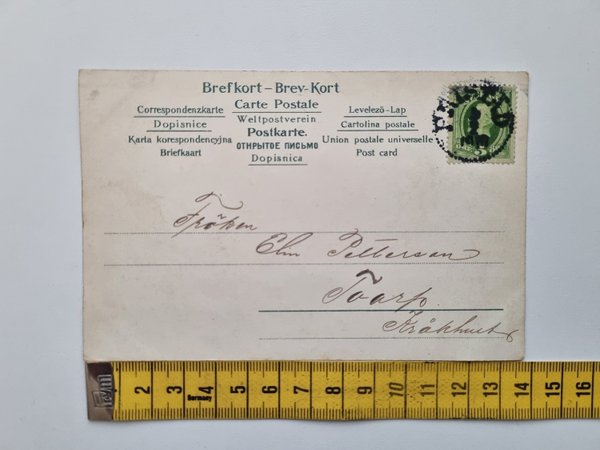 Brefkort – Brev-Kort
Correspondenzkarte Carte Postale Levelező-Lap
Dopisnice Weltpostverein Cartolina postale
Karta korespondencyjna Postkarte. Union postale universelle
Briefkaart ОТКРЫТОЕ ПИСЬМО Post card
Dopisnica
5
Fröken
Elin Petterson
Toarp.
Kråkhult
2 3 4 5 6 7 8 9 10 11 12 13 14 15 16
Germany